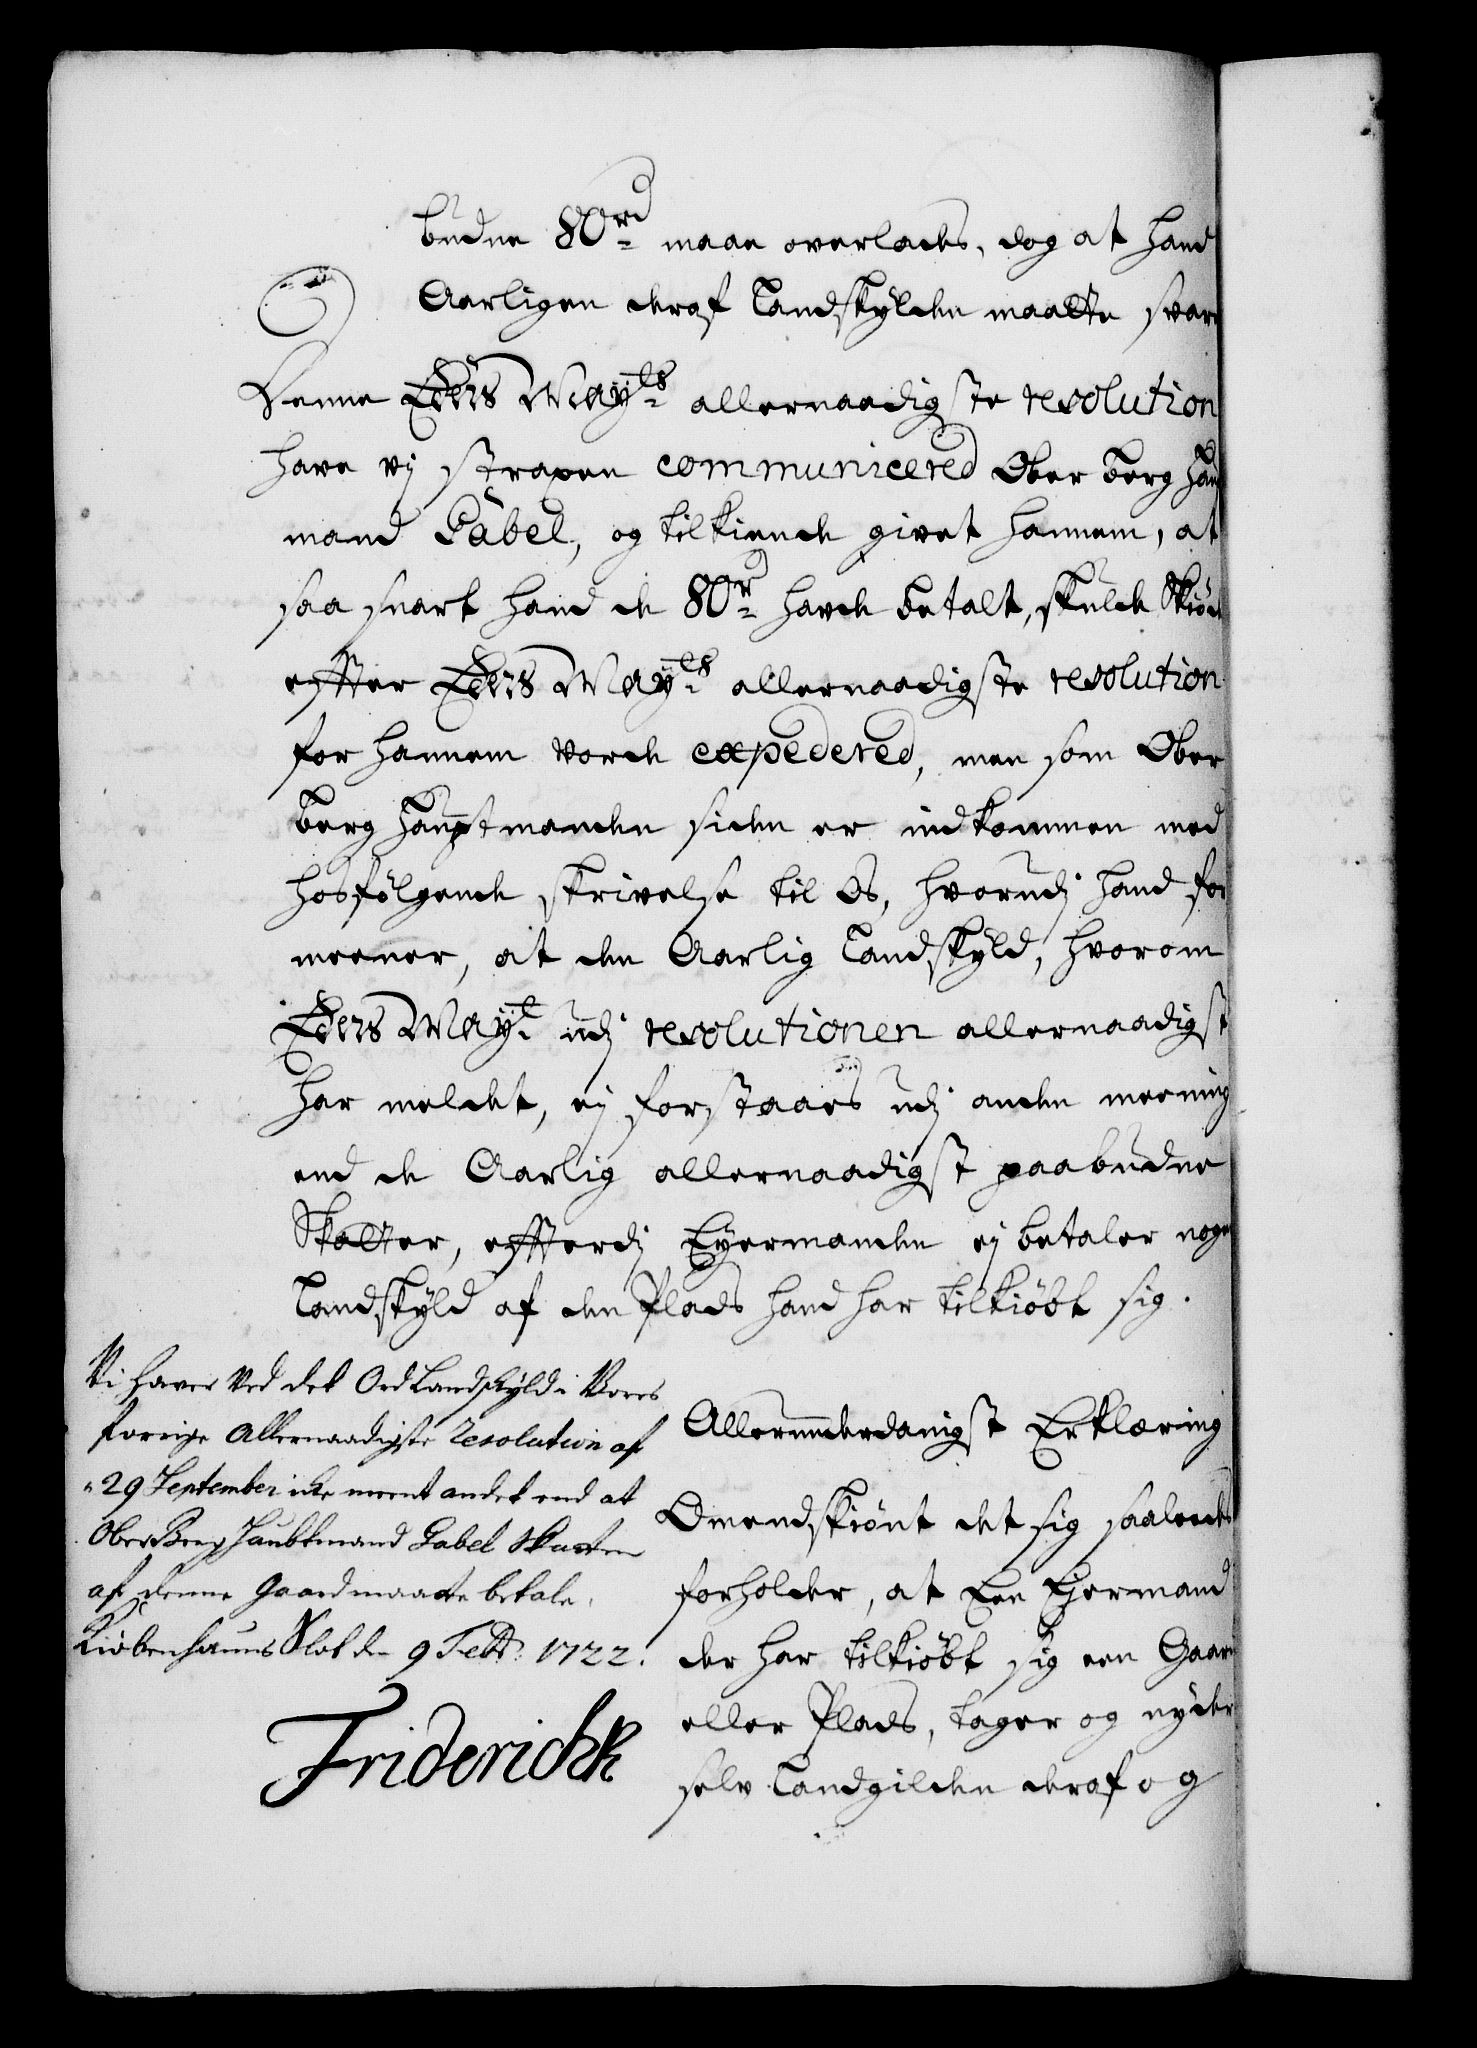 budne 80 rd maae overlades, dog at hand
Aarligen deraf Landskylden maatte svare
Denne Eders Mayts allernaadigste resolution
have vj strapen communicered Ober berg Haubt
mand Gabel, og tilkiende givet hannem, at
saa snart hand de 80 r havde betalt, skulde Skiøde
effter Eders Mayts allernaadigste resolution
for hannem vorde expedered, men som Ober
berg Hauptmanden siden er indkommen med
hosfølgende skrivelse til Os, hvorudj hand for
meener, at den Aarlig Landskyld, hvorom
Eders Mayt udj resolutionen allernaadigst
har meldet, ej forstaaes udj anden meening
end de Aarlig allernaadigst paabudne
Skatter, effterdj Eyermanden ej betaler nogen
Landskyld af den Plads hand har tilkiøbt sig.
Vi haver ved det Ord Landskyld i Vores
forrige Allernaadigste Resolution af
29 September icke meent andet end at
OberBerg Haubtmand Gabel Skatten
af denne Gaard maatte betale.
Kiøbenhauns Slot den 9 Febr: 1722.
FriderichR
Allerunderdanigst Erklæring
Omendskiønt det sig saaledes
forholder, at Een Ejermand
der har tilkiøbt sig een Gaard
eller Plads, tager og nyder
selv Landgilden deraf og